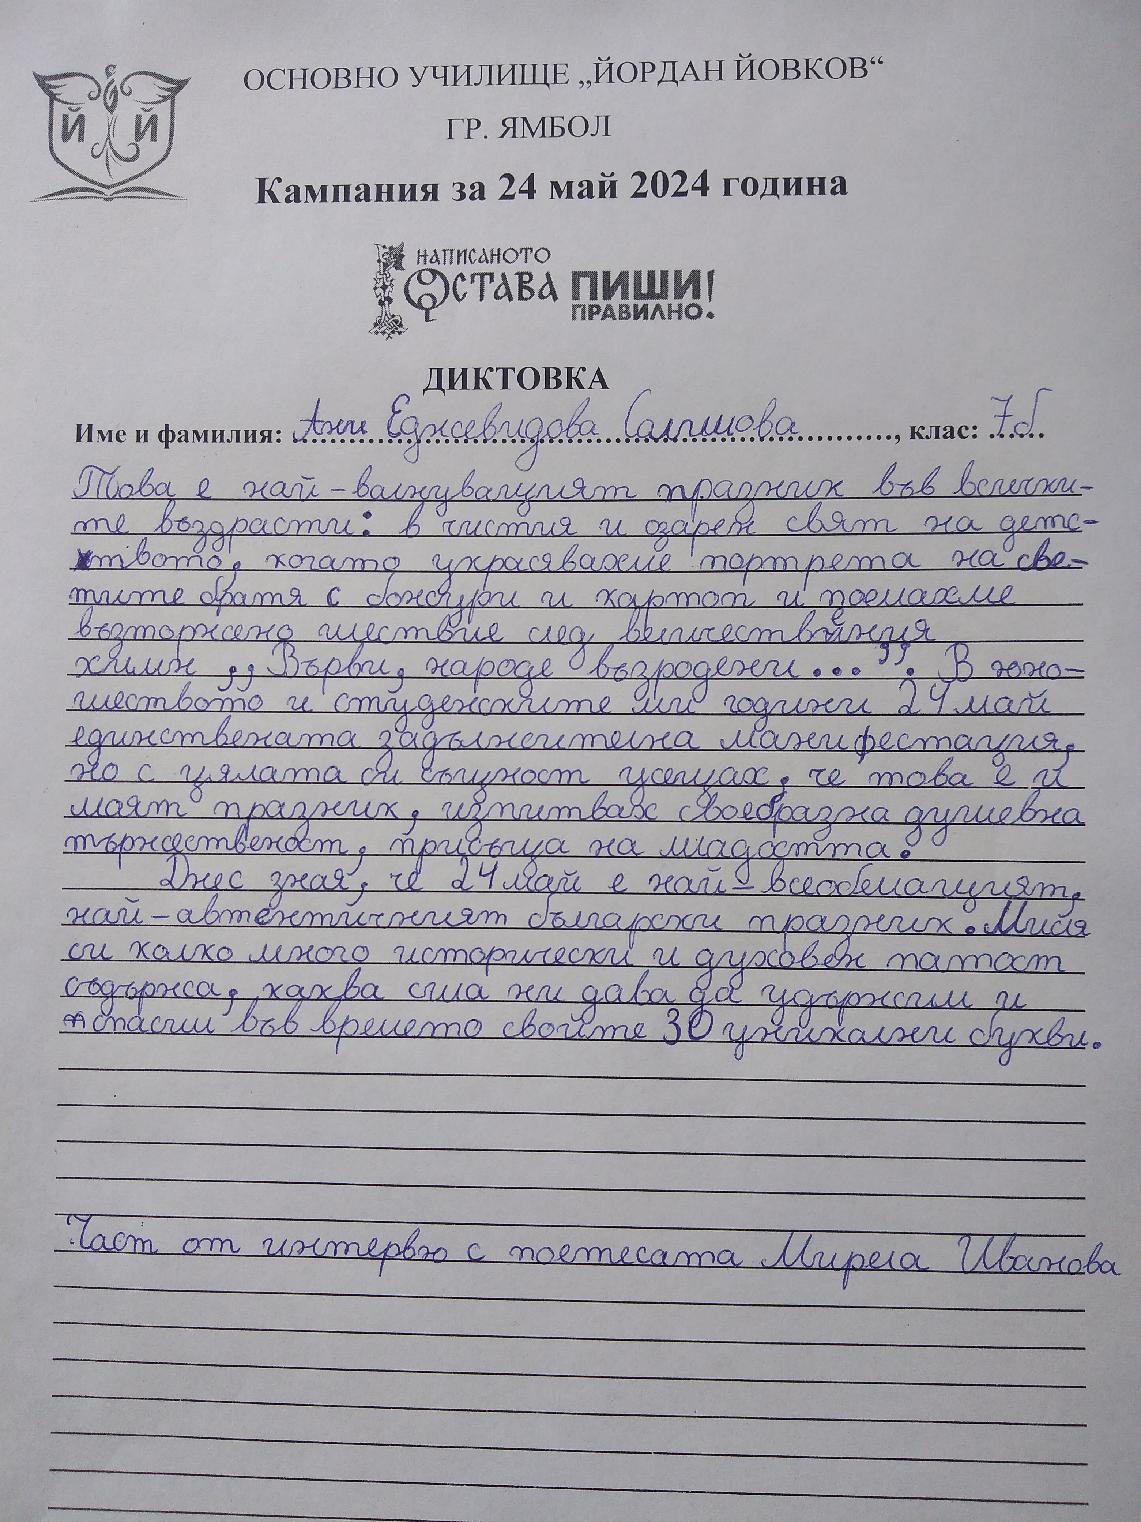 ОСНОВНО УЧИЛИЩЕ „ЙОРДАН ЙОВКОВ“
Й Й
ГР. ЯМБОЛ
Кампания за 24 май 2024 година
НАПИСАНОТО
ОСТАВА ПИШИ!
ПРАВИЛНО.
ДИКТОВКА
Име и фамилия: Ани Еджевидова Салимова, клас: 7б
Това е най-вълнуващият празник във всички-
те въздрасти: в чистия и озарен свят на детс-
твото, когато украсявахме портрета на све-
тите братя с божури и картон и поемахме
възторжено шествие след величествения
химн ,,Върви, народе възродени...”. В юно-
шеството и студенските ми години 24 май
единствената задължителна манифестация,
но с цялата си същност усещах, че това е и
моят празник, изпитвах своеобразна душевна
тържественост, присъща на младостта.
Днес зная, че 24 май е най-всеобемащият,
най-автентичният български празник. Мисля
си колко много исторически и духовен патост
съдържа, каква сила ни дава да удържим и
спасим във времето своите 30 уникални букви.
Част от интервю с поетесата Мирела Иванова